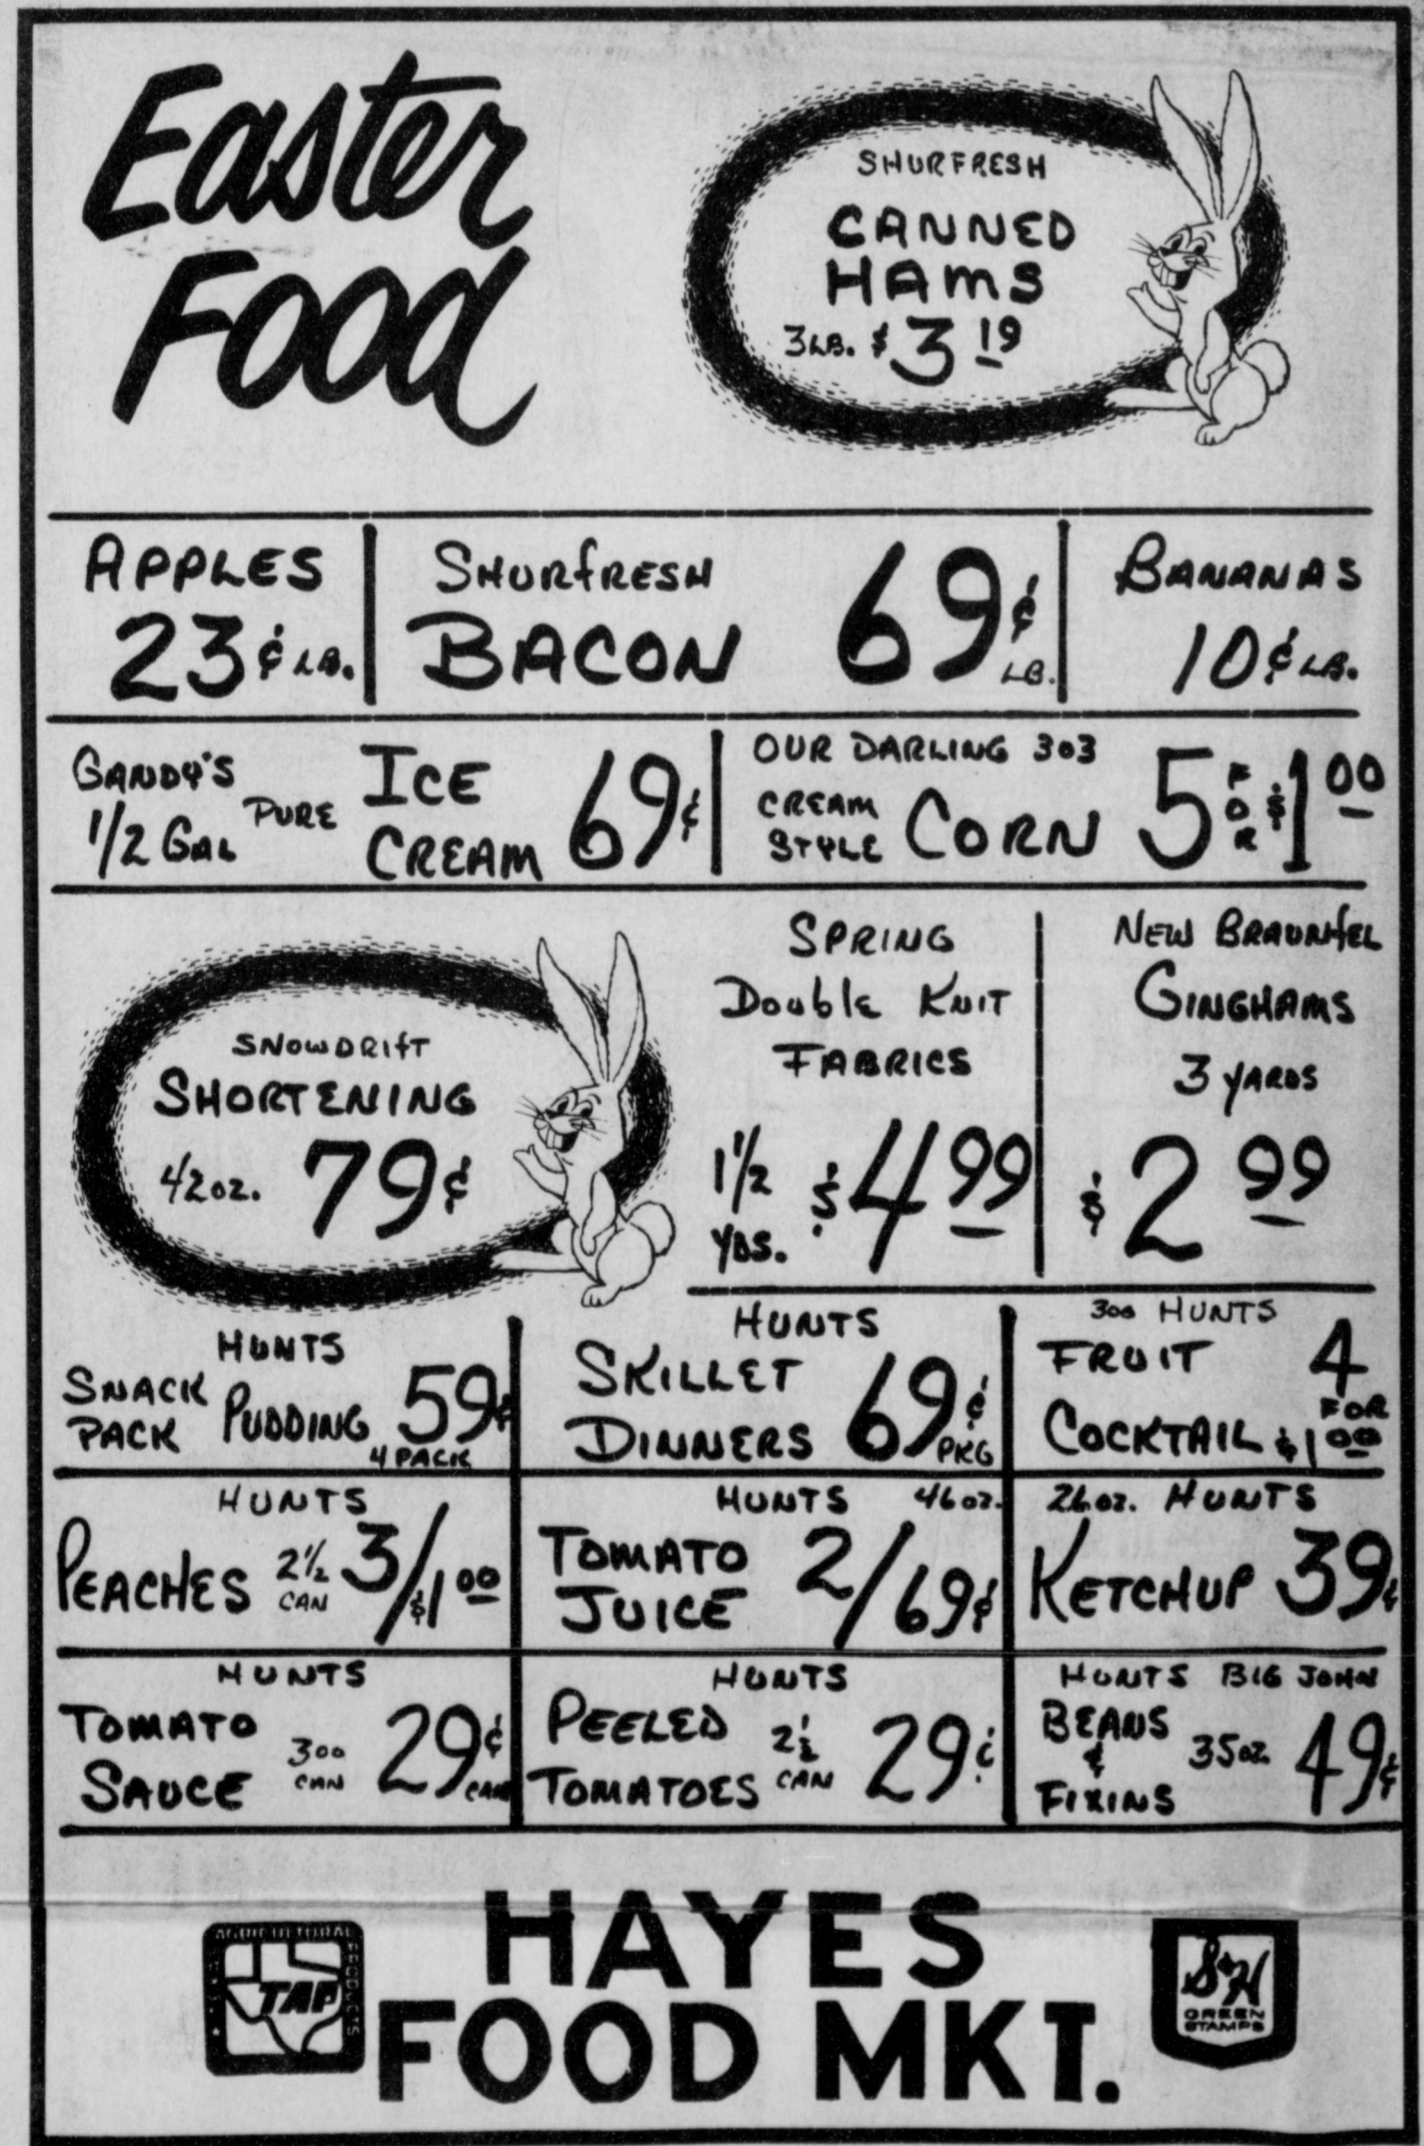 Easter
Food
SHURFRESH
CANNED
HAMS
3 LB. $3 19
APPLES
23¢ LB.
SHURFRESH
BACON
69¢ LB.
BANANAS
10¢ LB.
GANDY'S
1/2 GAL PURE
ICE
CREAM
69¢
OUR DARLING 303
CREAM
STYLE
CORN
5 FOR $1 00
SNOWDRIFT
SHORTENING
42 oz. 79¢
SPRING
Double KNIT
FABRICS
1 1/2
YDS.
$4 99
NEW BRAUNFEL
GINGHAMS
3 YARDS
$2 99
HUNTS
SNACK
PACK
PUDDING
59¢
4 PACK
HUNTS
SKILLET
DINNERS
69¢
PKG
300 HUNTS
FRUIT
COCKTAIL
4
FOR
$1 00
HUNTS
PEACHES
2 1/2
CAN
3/$1 00
HUNTS 46 oz.
TOMATO
JUICE
2/69¢
26 oz. HUNTS
KETCHUP 39¢
HUNTS
TOMATO
SAUCE
300
CAN
29¢
CAN
HUNTS
PEELED
TOMATOES
2 1/2
CAN
29¢
HUNTS BIG JOHN
BEANS
&
FIXINS
35 oz.
49¢
AGRICULTURAL
PRODUCTS
TAP
HAYES
FOOD MKT.
S&H
GREEN
STAMPS